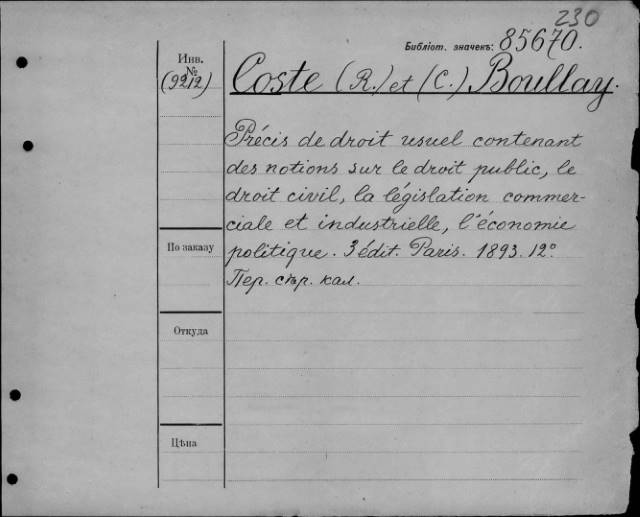 230
Библіот. значекъ: 85670.
Инв.
№
(9212)
Coste (R.) et (C.) Boullay.
Précis de droit usuel contenant
des notions sur le droit public, le
droit civil, la législation commer-
ciale et industrielle, l'économie
politique. 3 édit. Paris. 1893. 12º
Пер. сѣр. кал.
По заказу
Откуда
Цѣна